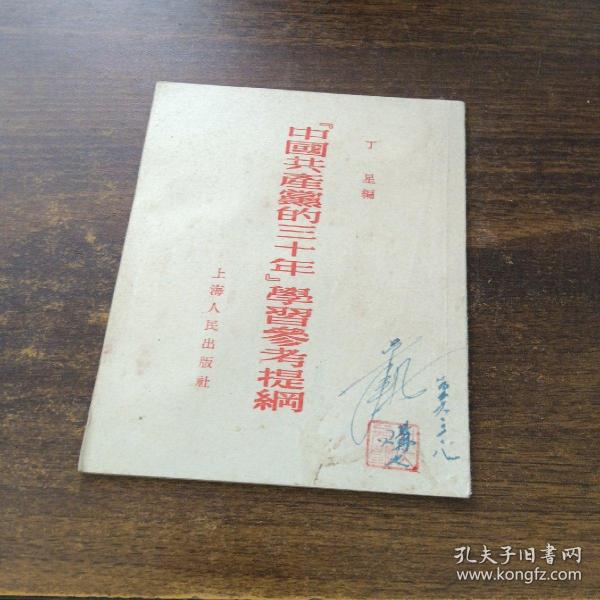 丁星編
『中國共產黨的三十年』學習參考提綱
上海人民出版社
孔夫子旧书网
www.kongfz.com